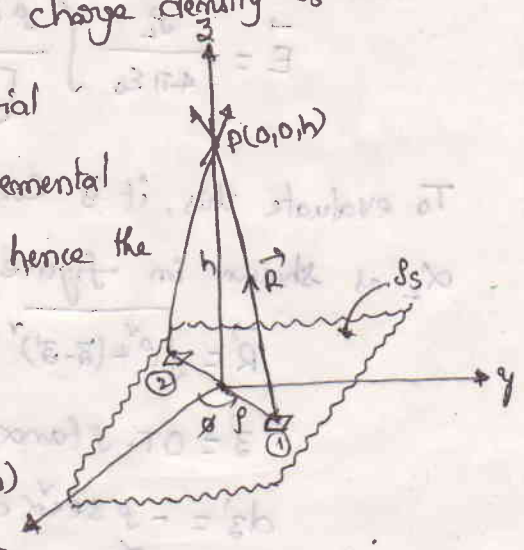 charge density is
z
ial
P(0,0,h)
emental
hence the
h
R
ρs
②
y
ø ρ
①